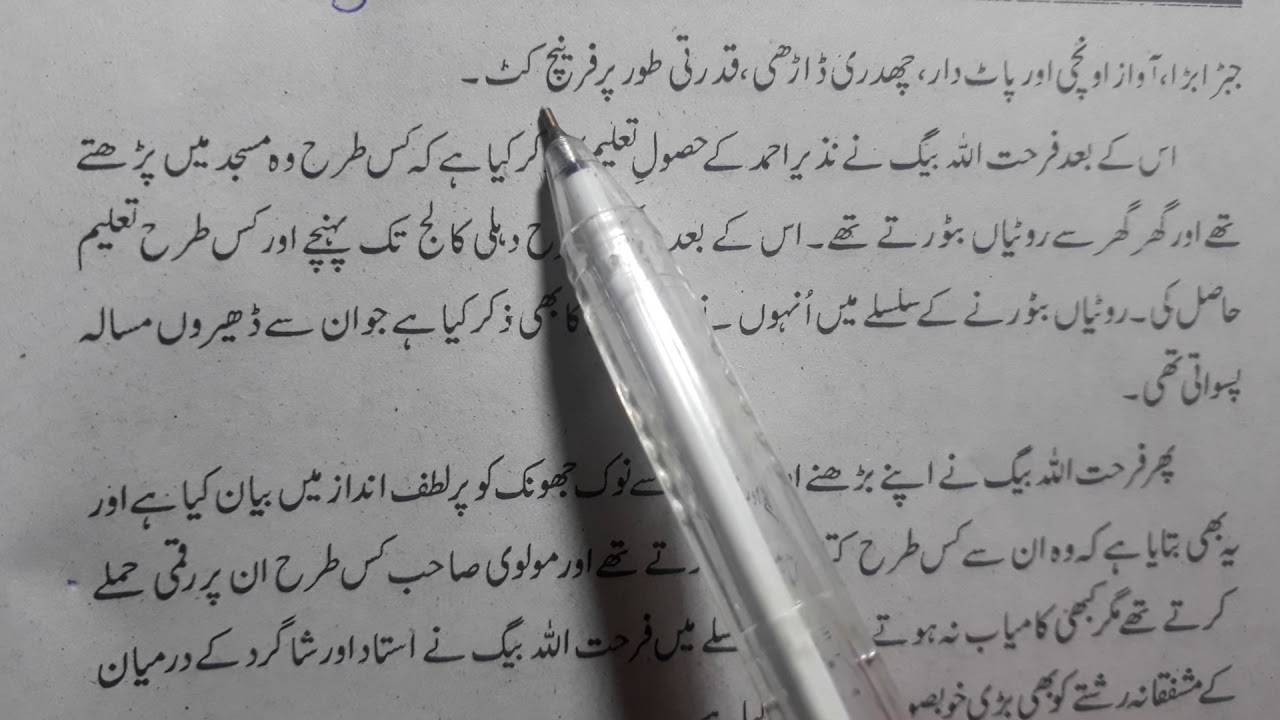 جبڑا بڑا، آواز اونچی اور پاٹ دار، چھدری ڈاڑھی، قدرتی طور پر فرینچ کٹ۔
اس کے بعد فرحت اللہ بیگ نے نذیر احمد کے حصولِ تعلیم کر کیا ہے کہ کس طرح وہ مسجد میں پڑھتے
تھے اور گھر گھر سے روٹیاں بٹورتے تھے۔ اس کے بعد دہلی کالج تک پہنچے اور کس طرح تعلیم
حاصل کی۔ روٹیاں بٹورنے کے سلسلے میں اُنہوں کا بھی ذکر کیا ہے جو ان سے ڈھیروں مسالہ
پسواتی تھی۔
پھر فرحت اللہ بیگ نے اپنے بڑھنے سے نوک جھونک کو پرلطف انداز میں بیان کیا ہے اور
یہ بھی بتایا ہے کہ وہ ان سے کس طرح رتے تھے اور مولوی صاحب کس طرح ان پر رقمی حملے
کرتے تھے مگر کبھی کامیاب نہ ہوتے سلے میں فرحت اللہ بیگ نے استاد اور شاگرد کے درمیان
کے مشفقانہ رشتے کو بھی بڑی